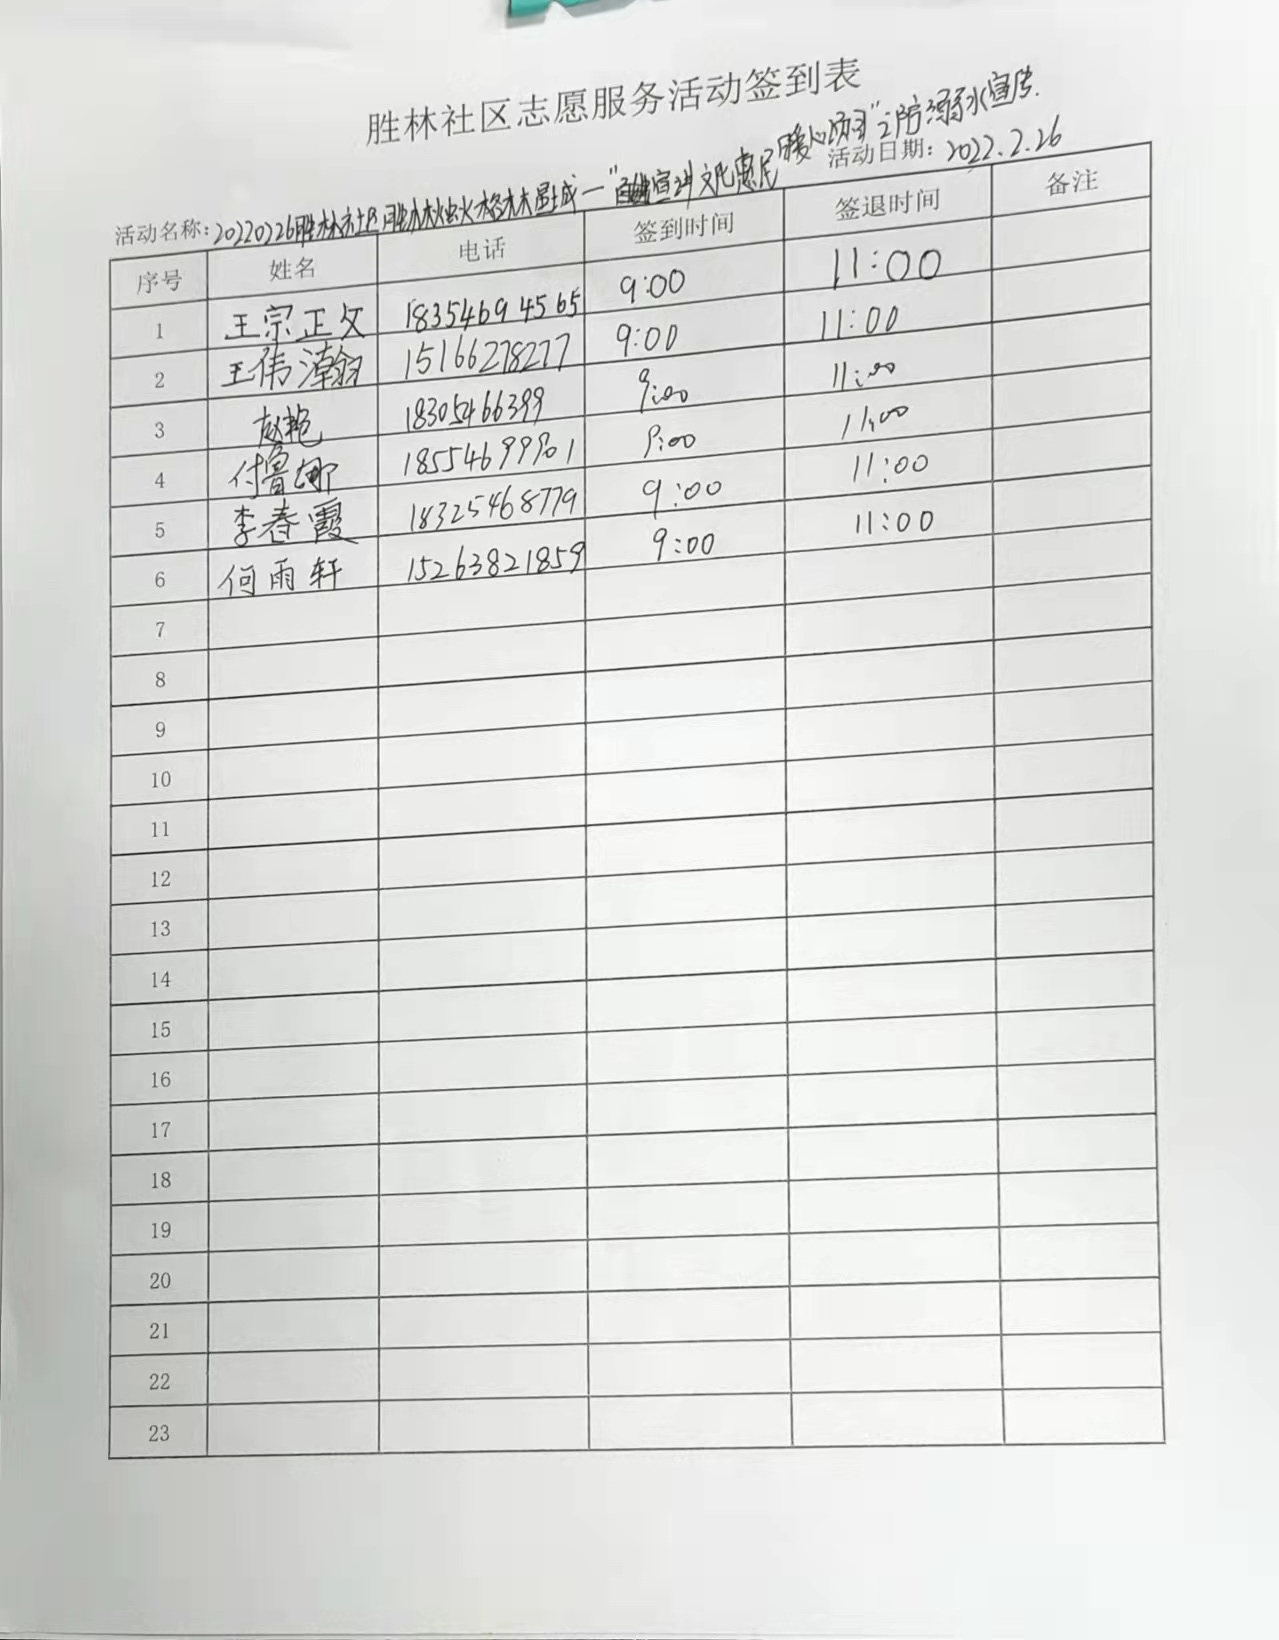 胜林社区志愿服务活动签到表
活动名称：20220226胜林社区胜林烛火格林星城一"宣讲文化惠民暖心防"之防溺水宣传.
活动日期：2022.2.26
序号 姓名 电话 签到时间 签退时间 备注
1 王宗正文 18354694565 9:00 11:00
2 王伟瀚 15166278277 9:00 11:00
3 赵艳 18305466399 9:00 11:00
4 付鲁娜 18554699901 9:00 11:00
5 李春霞 18325468779 9:00 11:00
6 何雨轩 15263821859 9:00 11:00
7
8
9
10
11
12
13
14
15
16
17
18
19
20
21
22
23